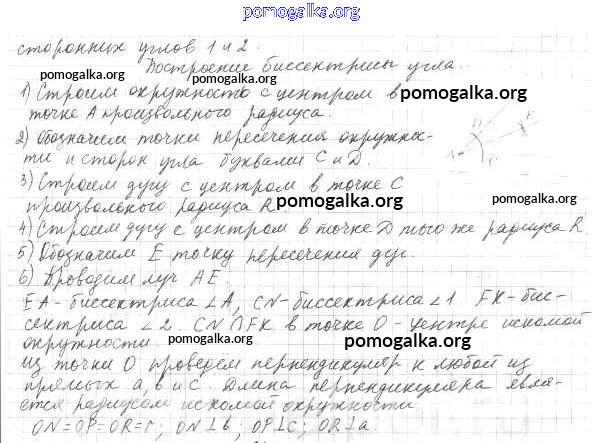 pomogalka.org
сторонних углов 1 и 2.
Построение биссектрисы угла.
pomogalka.org
1) Строим окружность с центром в
pomogalka.org
точке A произвольного радиуса.
2) Обозначим точки пересечения окружнос-
ти и сторон угла буквами C и D.
pomogalka.org
3) Строим дугу с центром в точке C
произвольного радиуса R.
pomogalka.org
pomogalka.org
4) Строим дугу с центром в точке D того же радиуса R
5) Обозначим E точку пересечения дуг.
pomogalka.org
6) Проводим луч AE.
EA - биссектриса ∠A, CN - биссектриса ∠1 FK - бис-
сектриса ∠2. CN ∩ FK в точке O - центре искомой
окружности.
pomogalka.org
pomogalka.org
Из точки O проведём перпендикуляр к любой из
прямых a, b и c. Длина перпендикуляра явля-
ется радиусом искомой окружности
ON=OP=OR=r; ON⊥b; OP⊥c; OR⊥a.
pomogalka.org
pomogalka.org
A
D
E
C